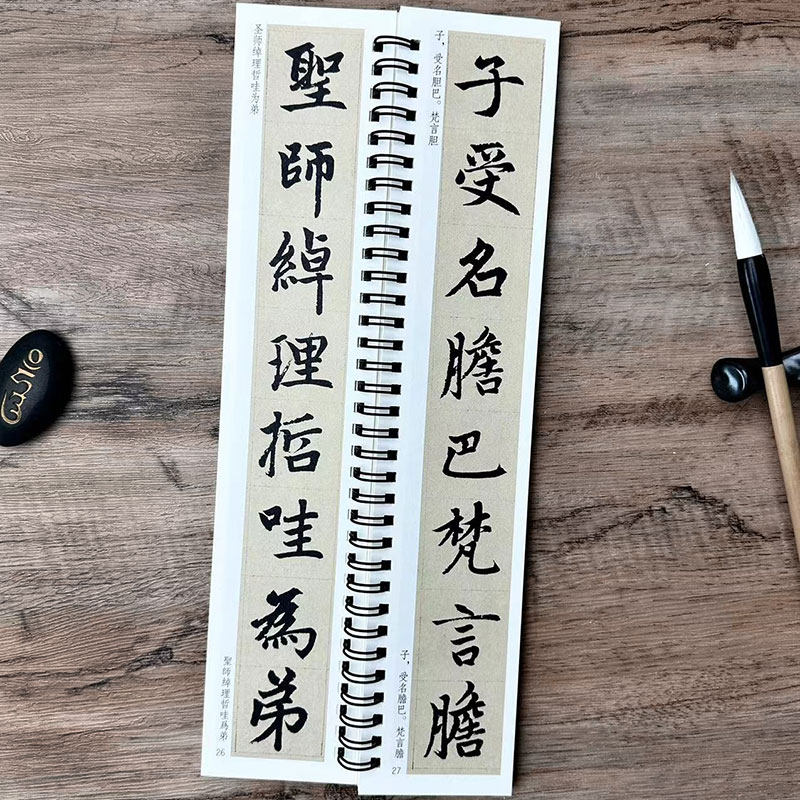 圣师绰理哲哇为弟
聖師綽理哲哇為弟
聖師綽理哲哇爲弟
26
子，受名胆巴。梵言胆
子受名膽巴梵言膽
子，受名膽巴。梵言膽
27